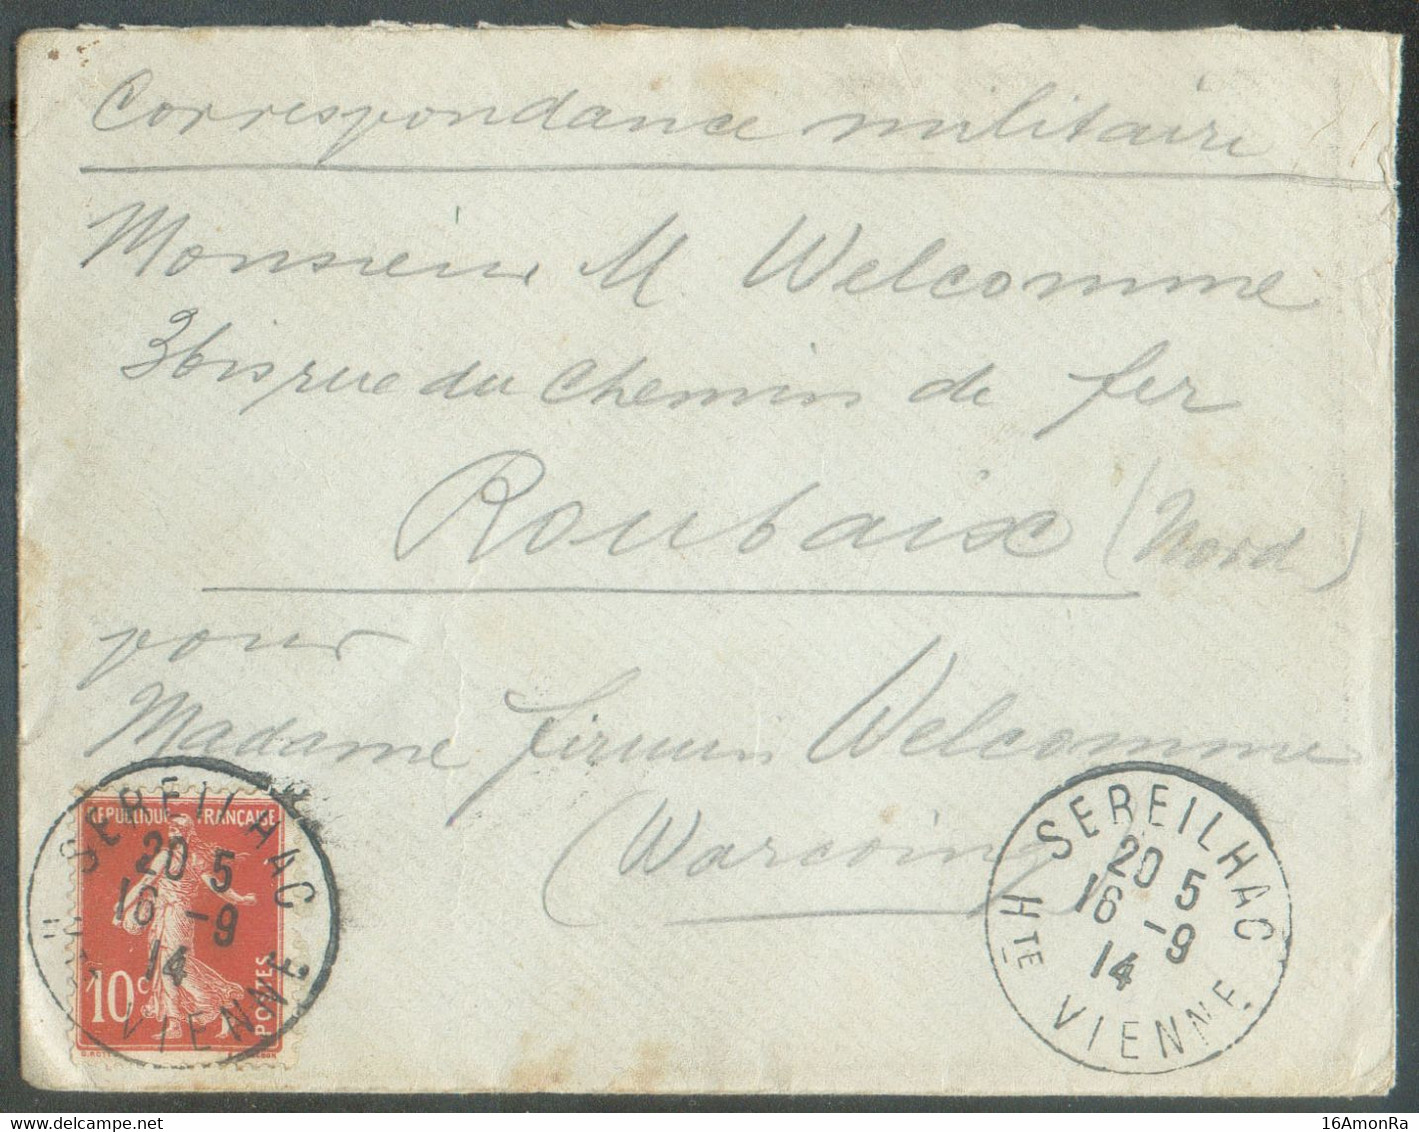 Correspondance militaire
Monsieur M Welcomme
3bis rue du Chemin de fer
Roubaix (Nord)
pour
Madame firmin Welcomme
(Warcoing)
REPUBLIQUE FRANÇAISE
10c
POSTES
SEREILHAC
20 5
16 -9
14
HTE VIENNE
SEREILHAC
20 5
16 -9
14
HTE VIENNE
16AmonRa